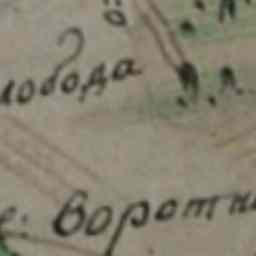 лобода
е: воротн